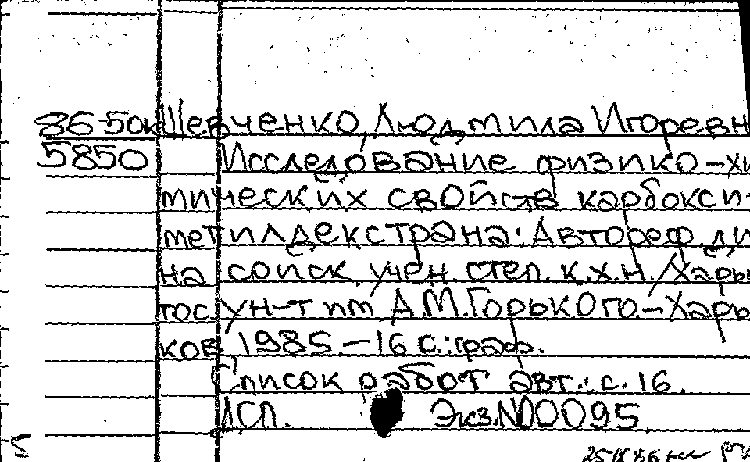 86-50к Шевченко, Людмила Игоревн
5850 Исследование физико-хи
мических свойств карбокси-
метилдекстрана: Автореф. ди
на соиск. учен. степ. к.х.н. /Харь
гос. ун-т им. А.М.Горького.-Харь
ков, 1985.-16 с.: граф.
Список работ авт.: с. 16.
ДСП. Экз.N00095.